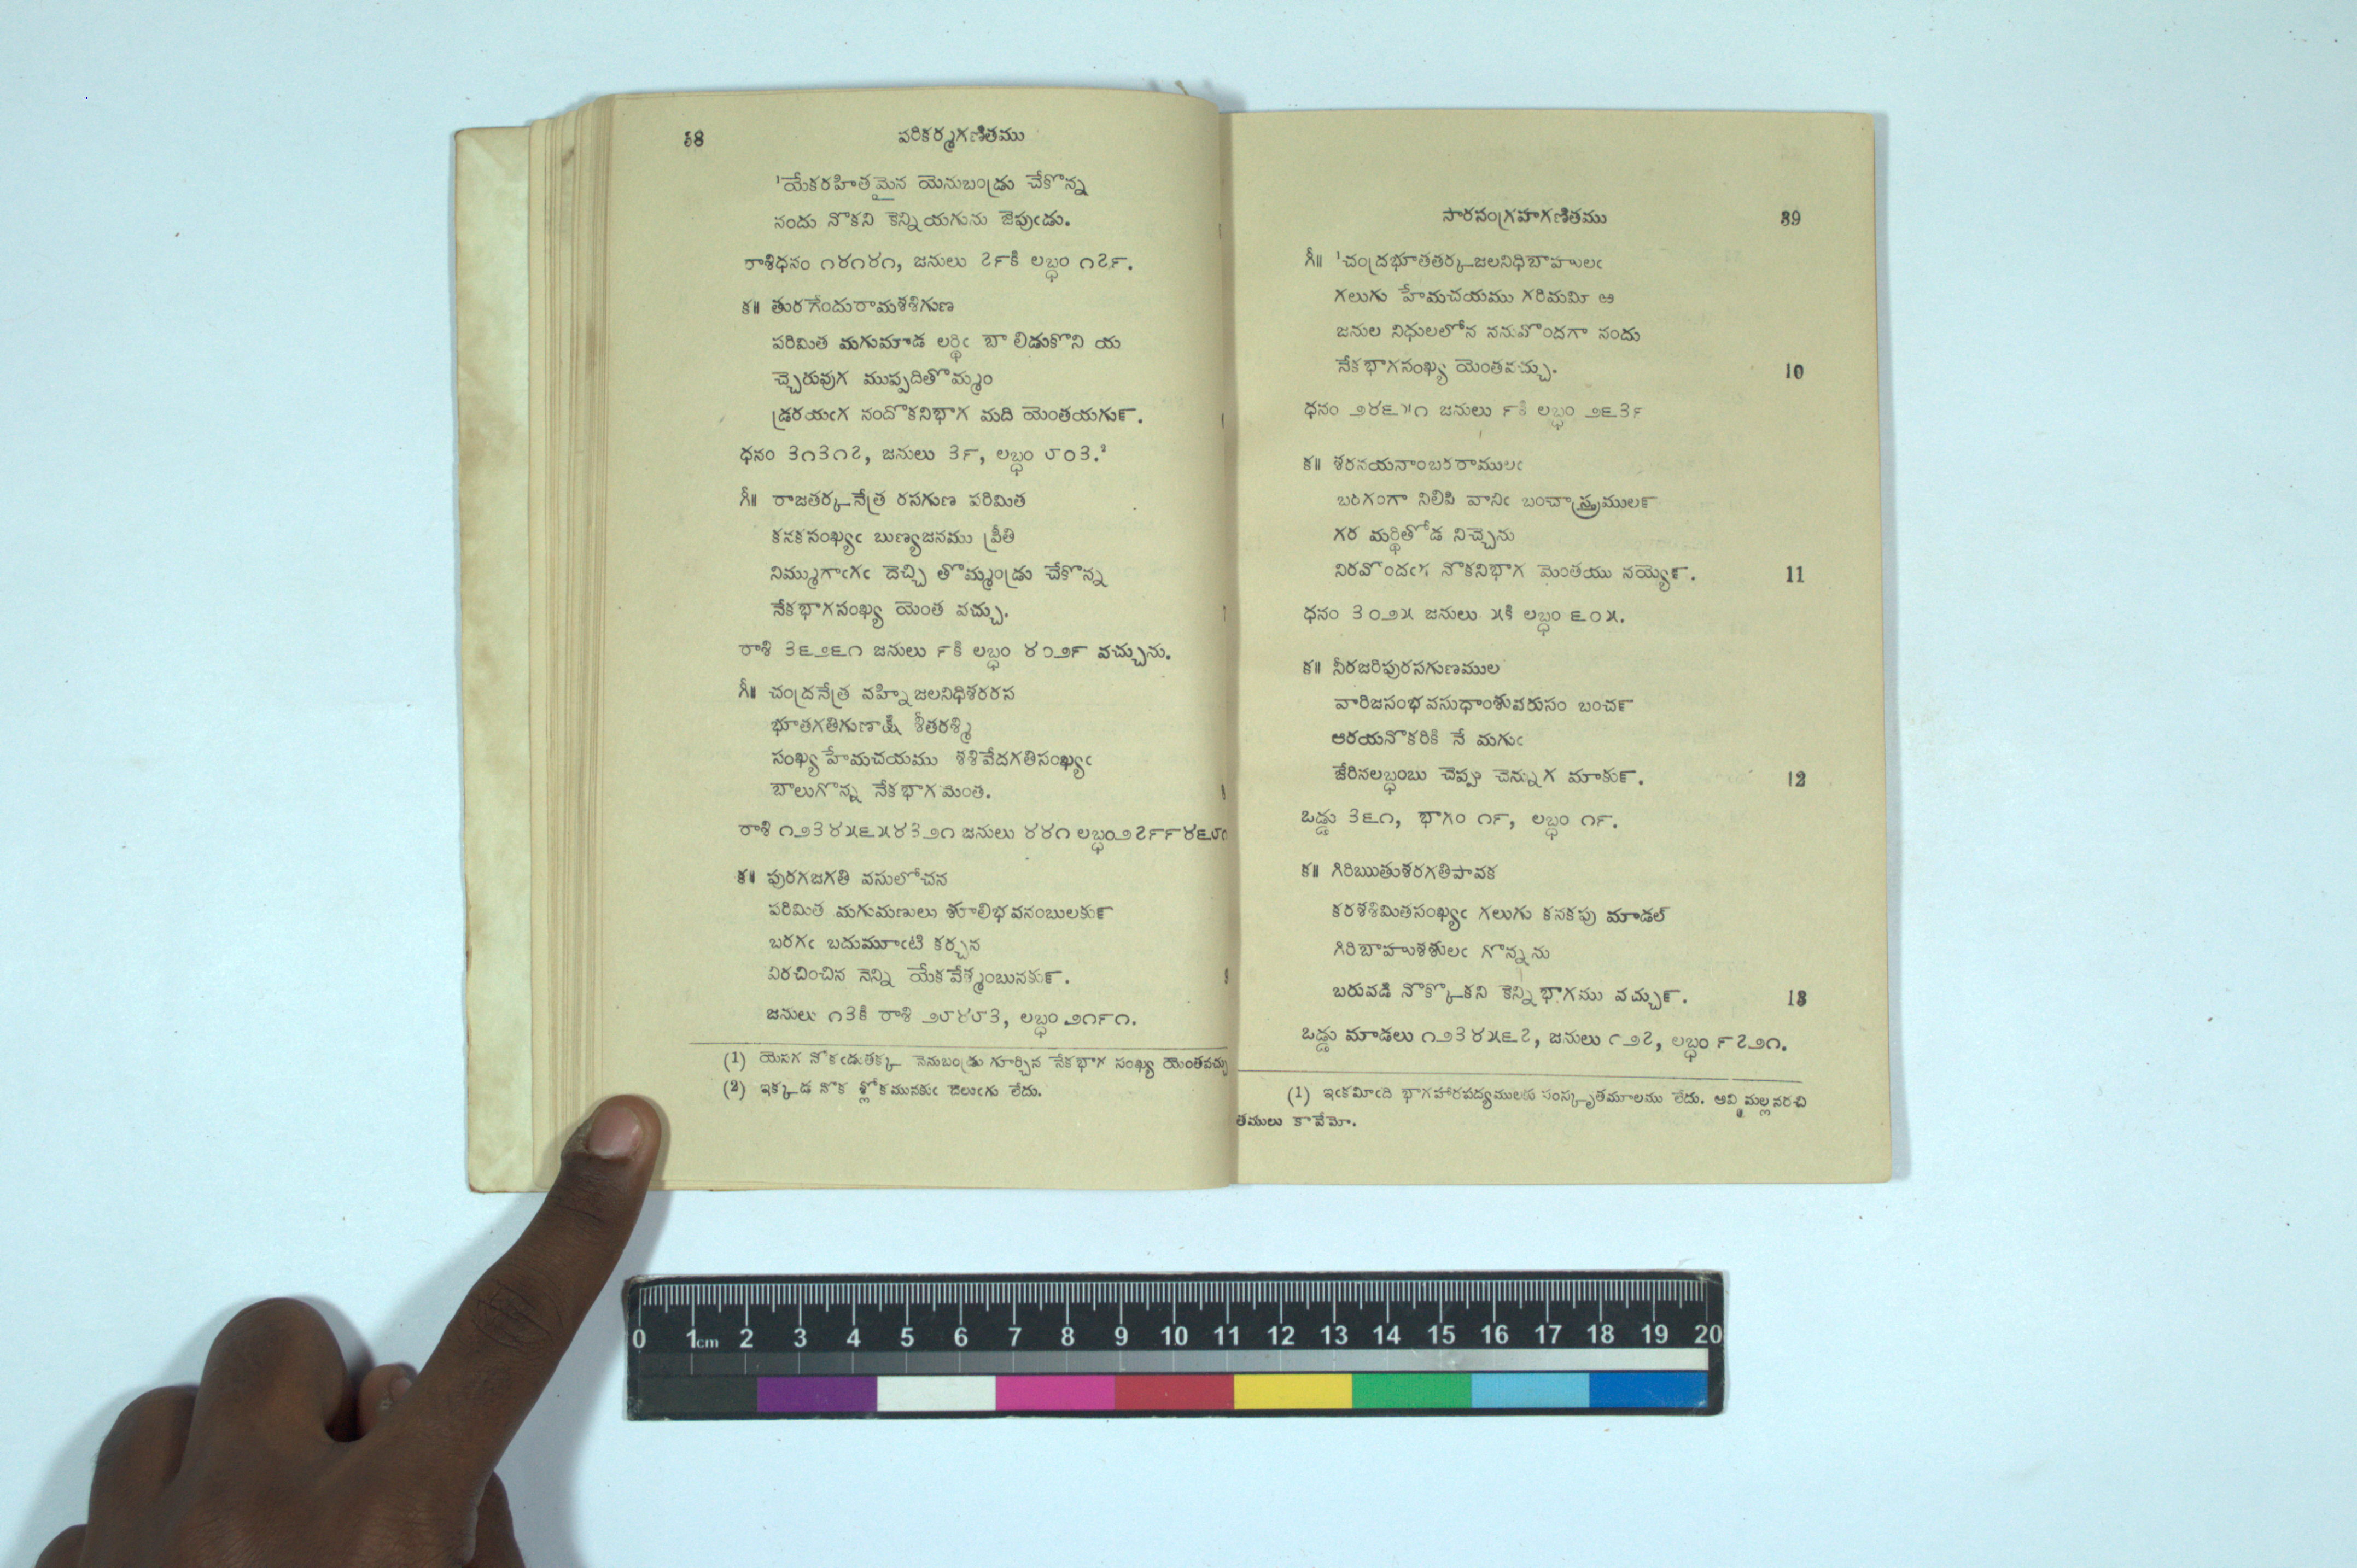 38 పరికర్మగణితము
¹యేకరహితమైన యెనుబండ్రు చేకొన్న
నందు నొకని కెన్నియగును జెపుఁడు.
రాశిధనం ౧౪౧౪౧, జనులు ౭౯కి లబ్ధం ౧౭౯.
క॥ తురగేందురామశశిగుణ
పరిమిత మగుమాడ లర్థిఁ బా లిడుకొని య
చ్చెరువుగ ముప్పదితొమ్మం
డ్రరయఁగ నందొకనిభాగ మది యెంతయగు౯.
ధనం ౩౧౩౧౭, జనులు ౩౯, లబ్ధం ౮౦౩.²
గీ॥ రాజతర్కనేత్ర రసగుణ పరిమిత
కనకసంఖ్యఁ బుణ్యజనము ప్రీతి
నిమ్ముగాఁగఁ దెచ్చి తొమ్మండ్రు చేకొన్న
నేకభాగసంఖ్య యెంత వచ్చు.
రాశి ౩౬౨౬౧ జనులు ౯కి లబ్ధం ౪౦౨౯ వచ్చును.
గీ॥ చంద్రనేత్ర వహ్ని జలనిధిశరరస
భూతగతిగుణాక్షి శీతరశ్మి
సంఖ్య హేమచయము శశివేదగతిసంఖ్యఁ
బాలుగొన్న నేకభాగమెంత.
రాశి ౧౨౩౪౫౬౫౪౩౨౧ జనులు ౪౪౧ లబ్ధం౨౭౯౯౪౬౮౧
క॥ పురగజగతి వసులోచన
పరిమిత మగుమణులు శూలిభవనంబులకు౯
బరగఁ బదుమూఁటి కర్చన
విరచించిన నెన్ని యేకవేశ్మంబునకు౯.
జనులు ౧౩కి రాశి ౨౮౪౮౩, లబ్ధం ౨౧౯౧.
(1) యెసగ నొకఁడుతక్క నెనుబండ్రు గూర్చిన నేకభాగ సంఖ్య యెంతవచ్చు
(2) ఇక్కడ నొక శ్లోకమునకుఁ దెలుఁగు లేదు.
సారసంగ్రహగణితము 39
గీ॥ ¹చంద్రభూతతర్కజలనిధిబాహులఁ
గలుగు హేమచయము గరిమమీ ఱ
జనుల నిధులలోన ననువొందగా నందు
నేకభాగసంఖ్య యెంతవచ్చు. 10
ధనం ౨౪౬౫౧ జనులు ౯కి లబ్ధం ౨౭౩౯
క॥ శరనయనాంబరరాములఁ
బరగంగా నిలిపి వానిఁ బంచాస్త్రముల౯
గర మర్థితోడ నిచ్చెను
నిరవొందఁగ నొకనిభాగ మెంతయు నయ్యె౯. 11
ధనం ౩౦౨౫ జనులు ౫కి లబ్ధం ౬౦౫.
క॥ నీరజరిపురసగుణముల
వారిజసంభవసుధాంశువరుసం బంచ౯
ఆరయనొకరికి నే మగుఁ
జేరినలబ్ధంబు చెప్పు చెన్నుగ మాకు౯. 12
ఒడ్డు ౩౬౧, భాగం ౧౯, లబ్ధం ౧౯.
క॥ గిరిఋతుశరగతిపావక
కరశశిమితసంఖ్యఁ గలుగు కనకపు మాడల్
గిరిబాహుశశులఁ గొన్నను
బరువడి నొక్కొకని కెన్నిభాగము వచ్చు౯. 13
ఒడ్డు మాడలు ౧౨౩౪౫౬౭, జనులు ౧౨౭, లబ్ధం ౯౭౨౧.
(1) ఇఁకమీఁది భాగహారపద్యములకు సంస్కృతమూలము లేదు. అవి మల్లనరచి
తములు కావేమో.
0 1cm 2 3 4 5 6 7 8 9 10 11 12 13 14 15 16 17 18 19 20